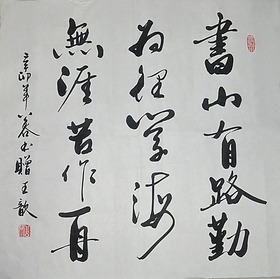 書山有路勤
为径学海
無涯苦作舟
辛卯年书贈王歆